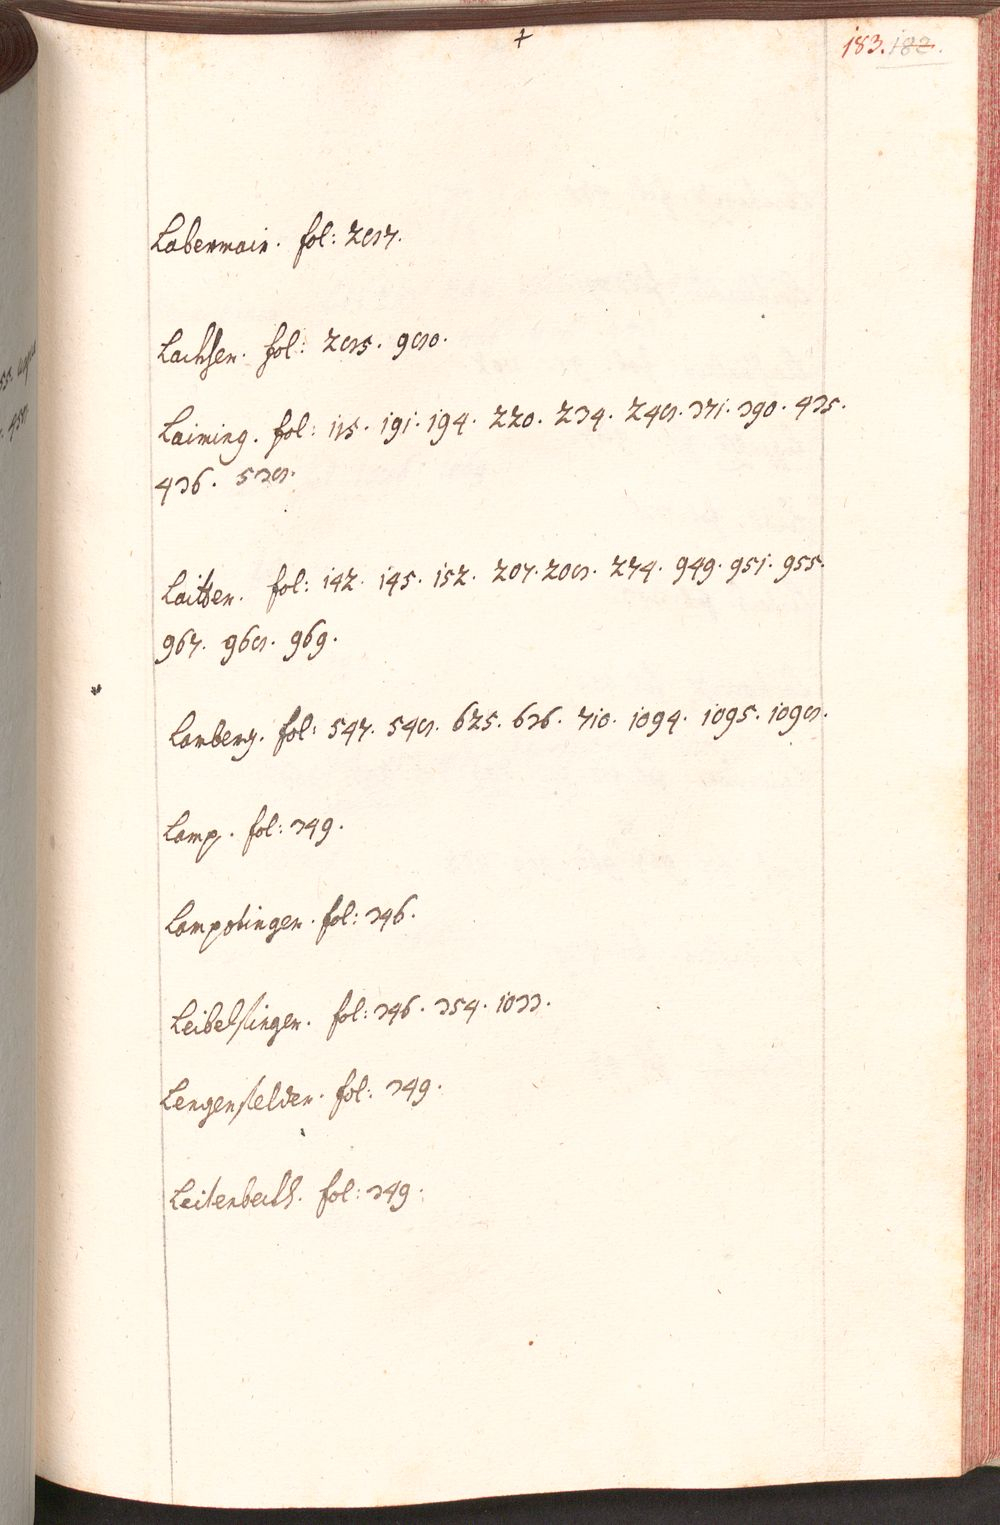 +
183. 182.
Labermair. fol: 287.
Lachser. fol: 285. 980.
Laiming. fol: 115. 191. 194. 220. 234. 248. 371. 390. 435.
436. 538.
Laitter. fol: 142. 145. 152. 207. 208. 274. 949. 951. 955.
967. 968. 969.
Lamberg. fol: 547. 548. 625. 636. 710. 1094. 1095. 1098.
Lamp. fol: 349.
Lampotinger. fol: 346.
Leibelfinger. fol: 346. 354. 1033.
Lengenfelder. fol: 349.
Leitenbeckh. fol: 349.